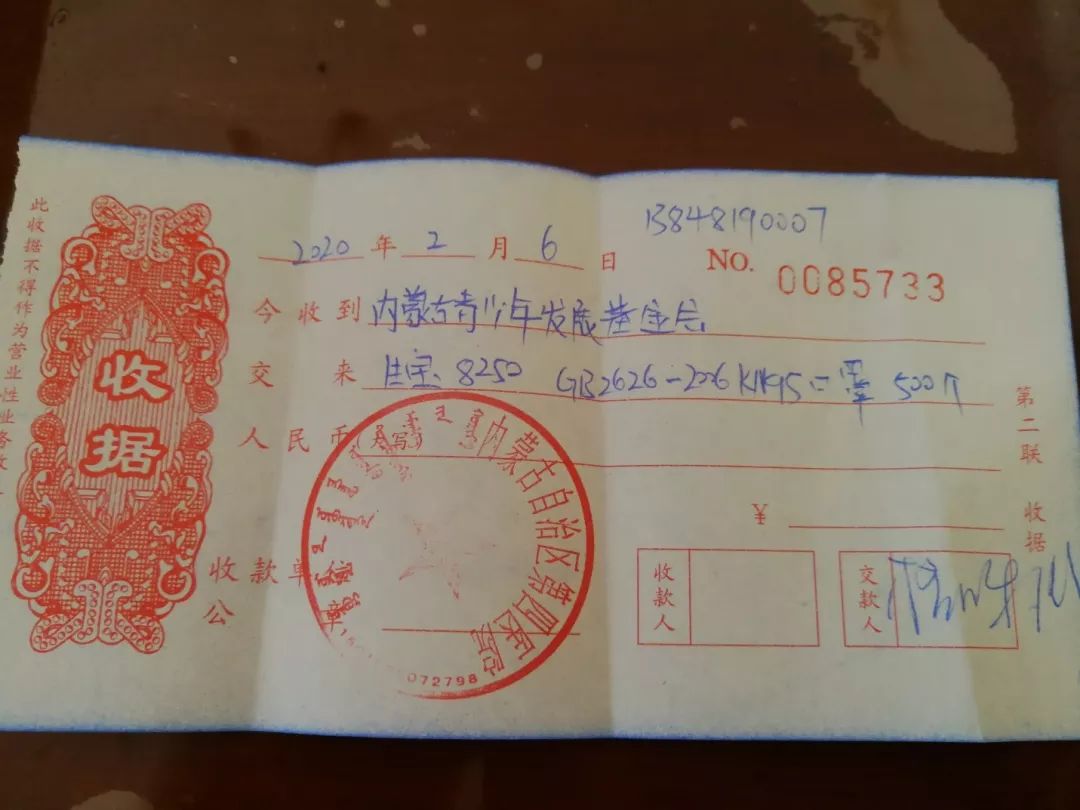 此收据不得作为营业性业务收
收据
13848190007
2020 年 2 月 6 日 NO. 0085733
今收到 内蒙古青少年发展基金会
交来 8250 GB2626-2006 KN95口罩 500个
人民币(大写)
内蒙古自治区第四医院
072798
¥
收款单
公章
收款人
交款人
第二联
收据